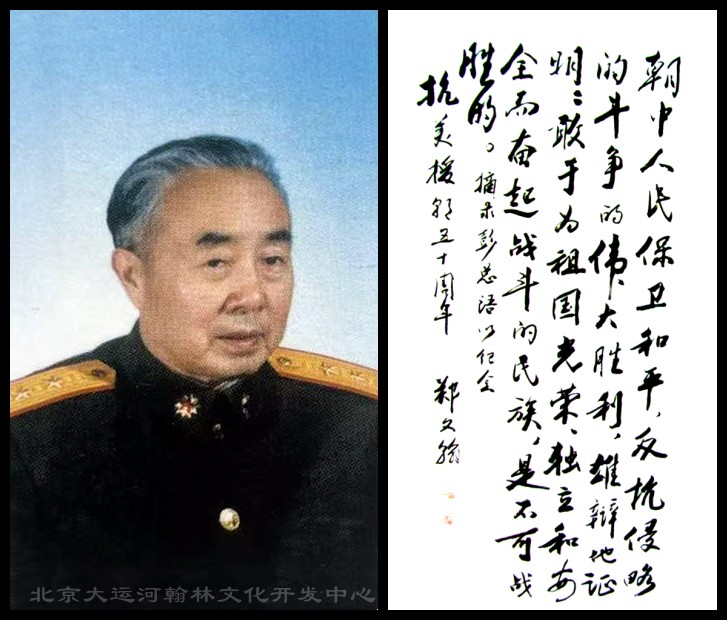 朝中人民保卫和平,反抗侵略
的斗争的伟大胜利,雄辩地证
明:敢于为祖国光荣、独立和安
全而奋起战斗的民族,是不可战
胜的。摘录彭总语以纪念
抗美援朝五十周年 郑文翰
北京大运河翰林文化开发中心